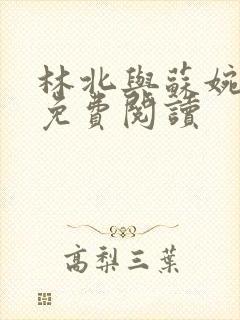 林北與蘇婉
免費閱讀
高梨三葉